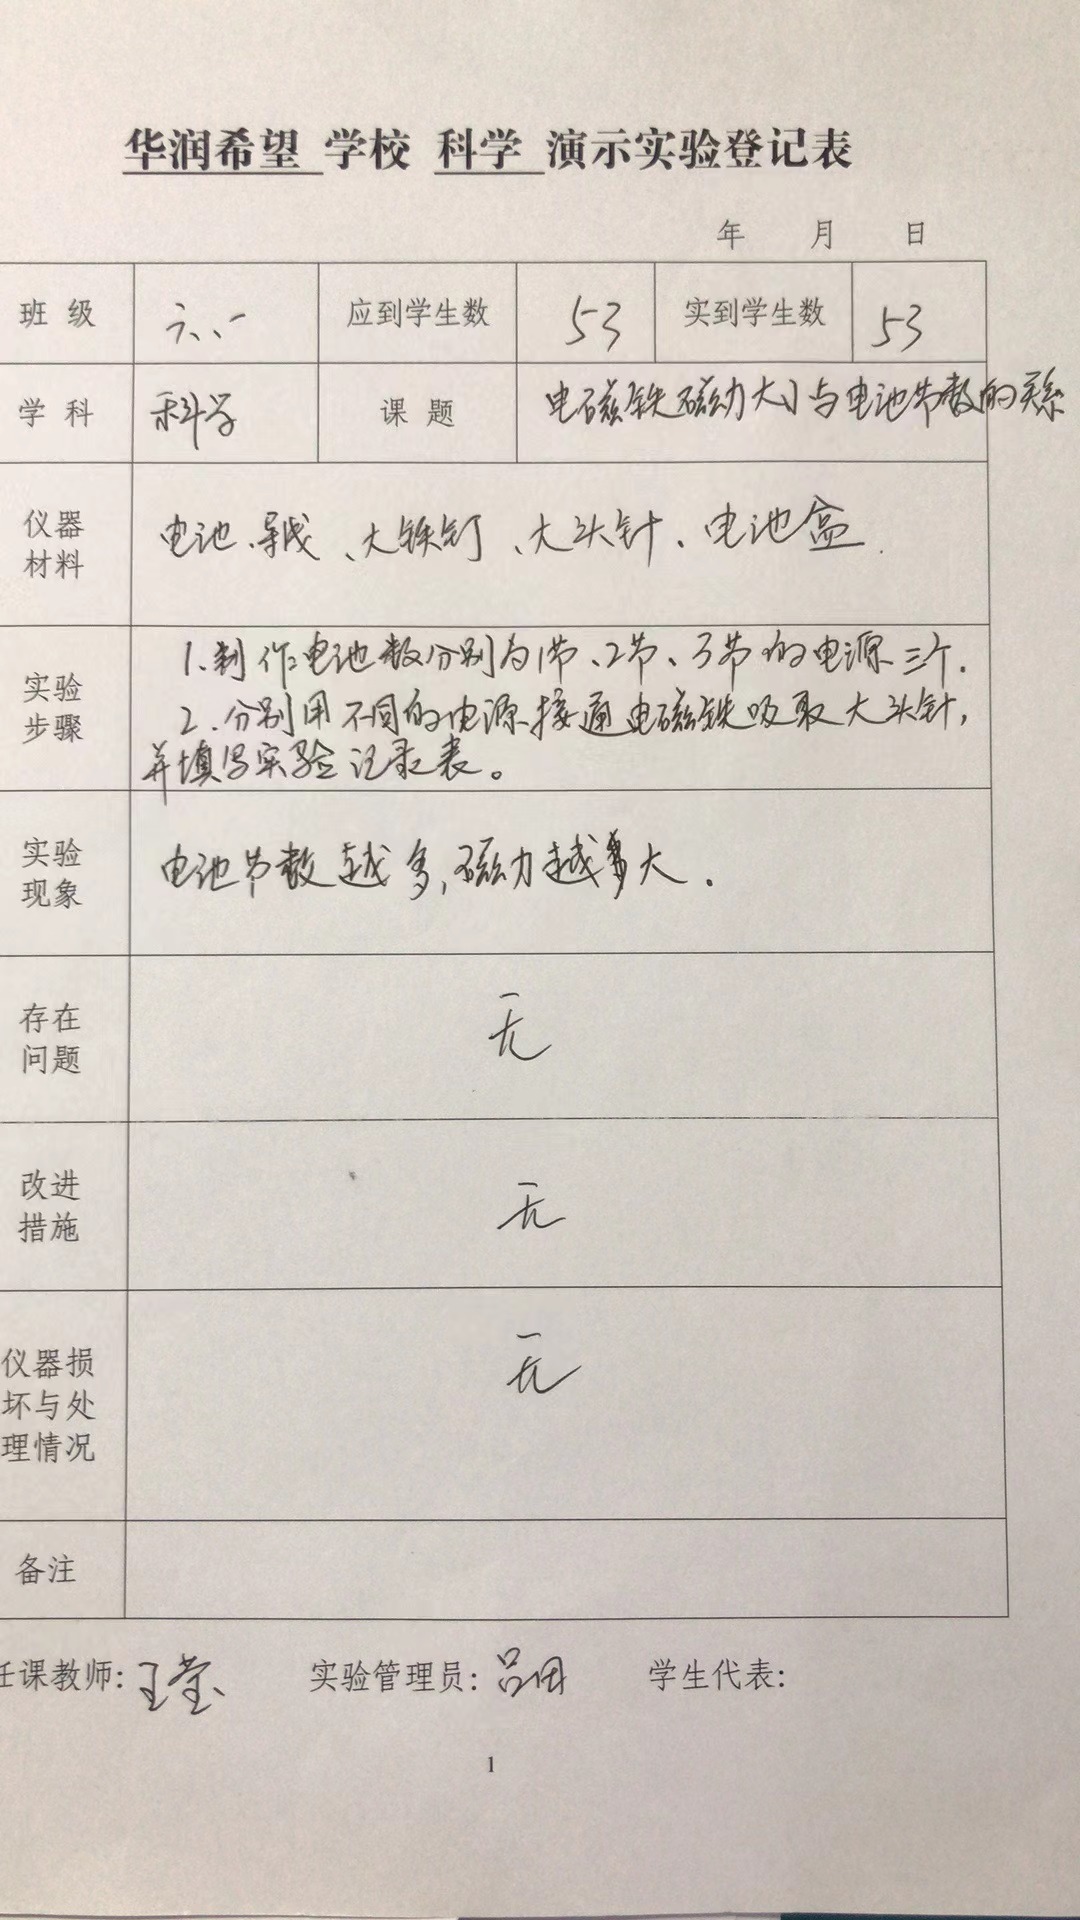 华润希望 学校 科学 演示实验登记表
年 月 日
班 级 六、一 应到学生数 53 实到学生数 53
学 科 科学 课 题 电磁铁磁力大小与电池节数的关系
仪器
材料
电池、导线、大铁钉、大头针、电池盒.
实验
步骤
1.制作电池数分别为1节、2节、3节的电源三个.
2.分别用不同的电源接通电磁铁吸取大头针,
并填写实验记录表。
实验
现象
电池节数越多,磁力越大.
存在
问题
无
改进
措施
无
仪器损
坏与处
理情况
无
备注
任课教师:王莹 实验管理员:吕田 学生代表:
1